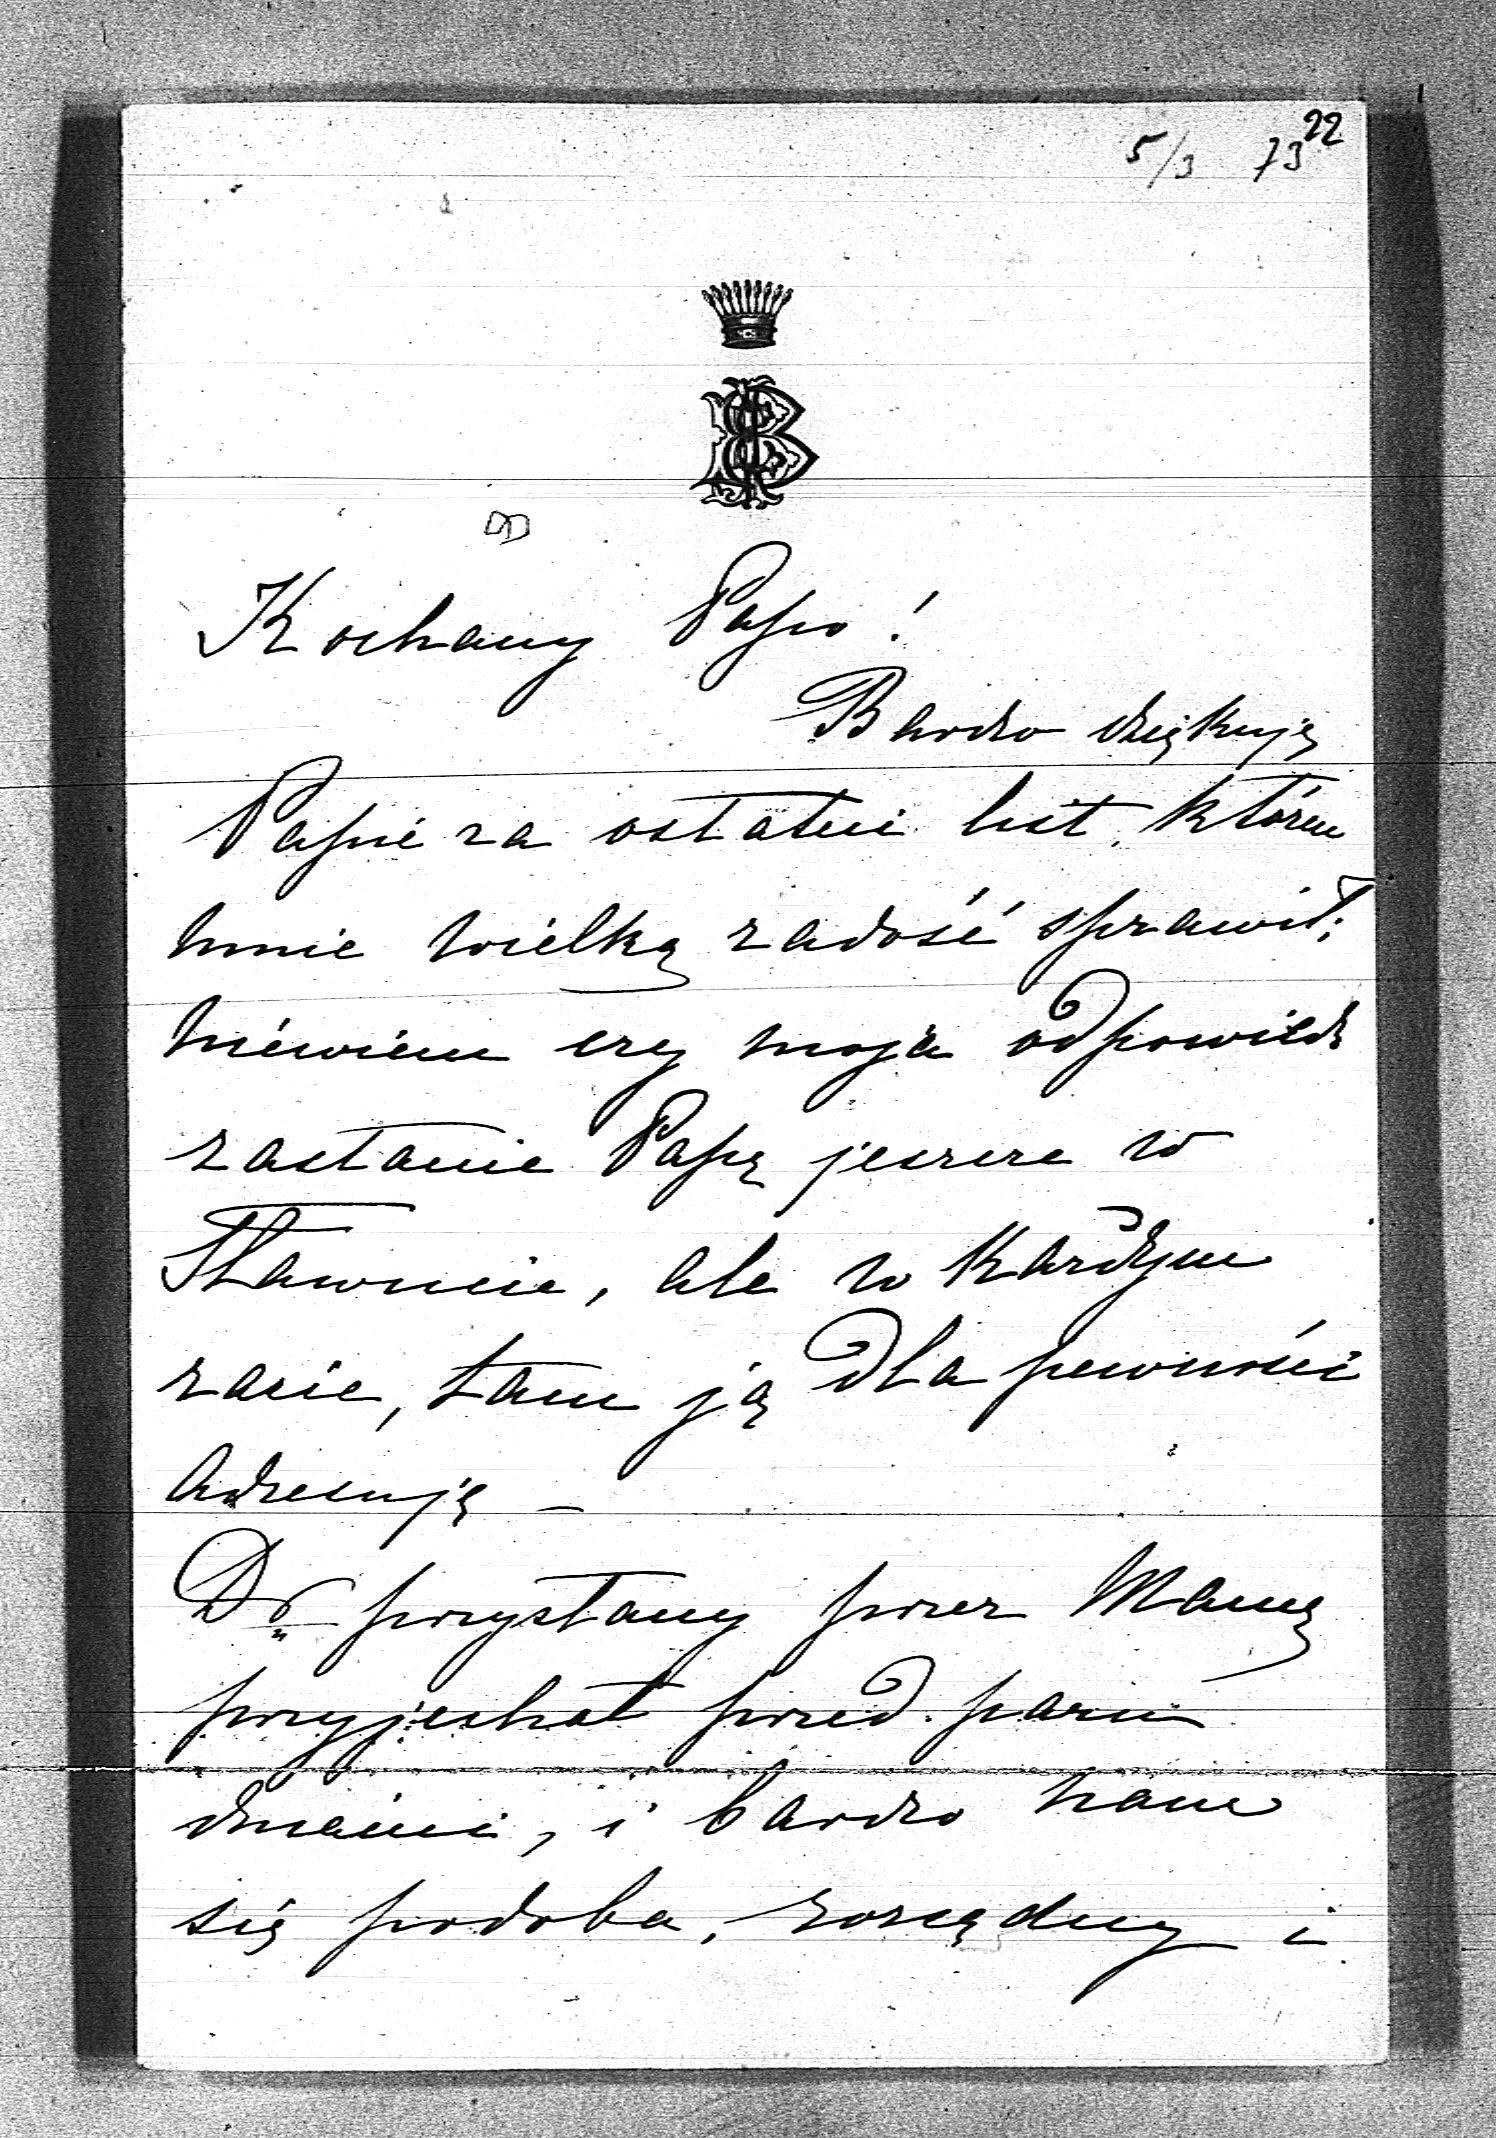 22
5/3 73
Kochany Papo!
Bardzo dziękuję
Papie za ostatni list, któren
mnie wielką radość sprawił;
niewiem czy moja odpowiedź
zastanie Papę jeszcze w
Sławucie, ale w każdym
razie, tam ją dla pewności
adresuję –
Dr przysłany przez Mamę
przyjechał przed paru
dniami, i bardzo nam
się podoba, rozsądny i